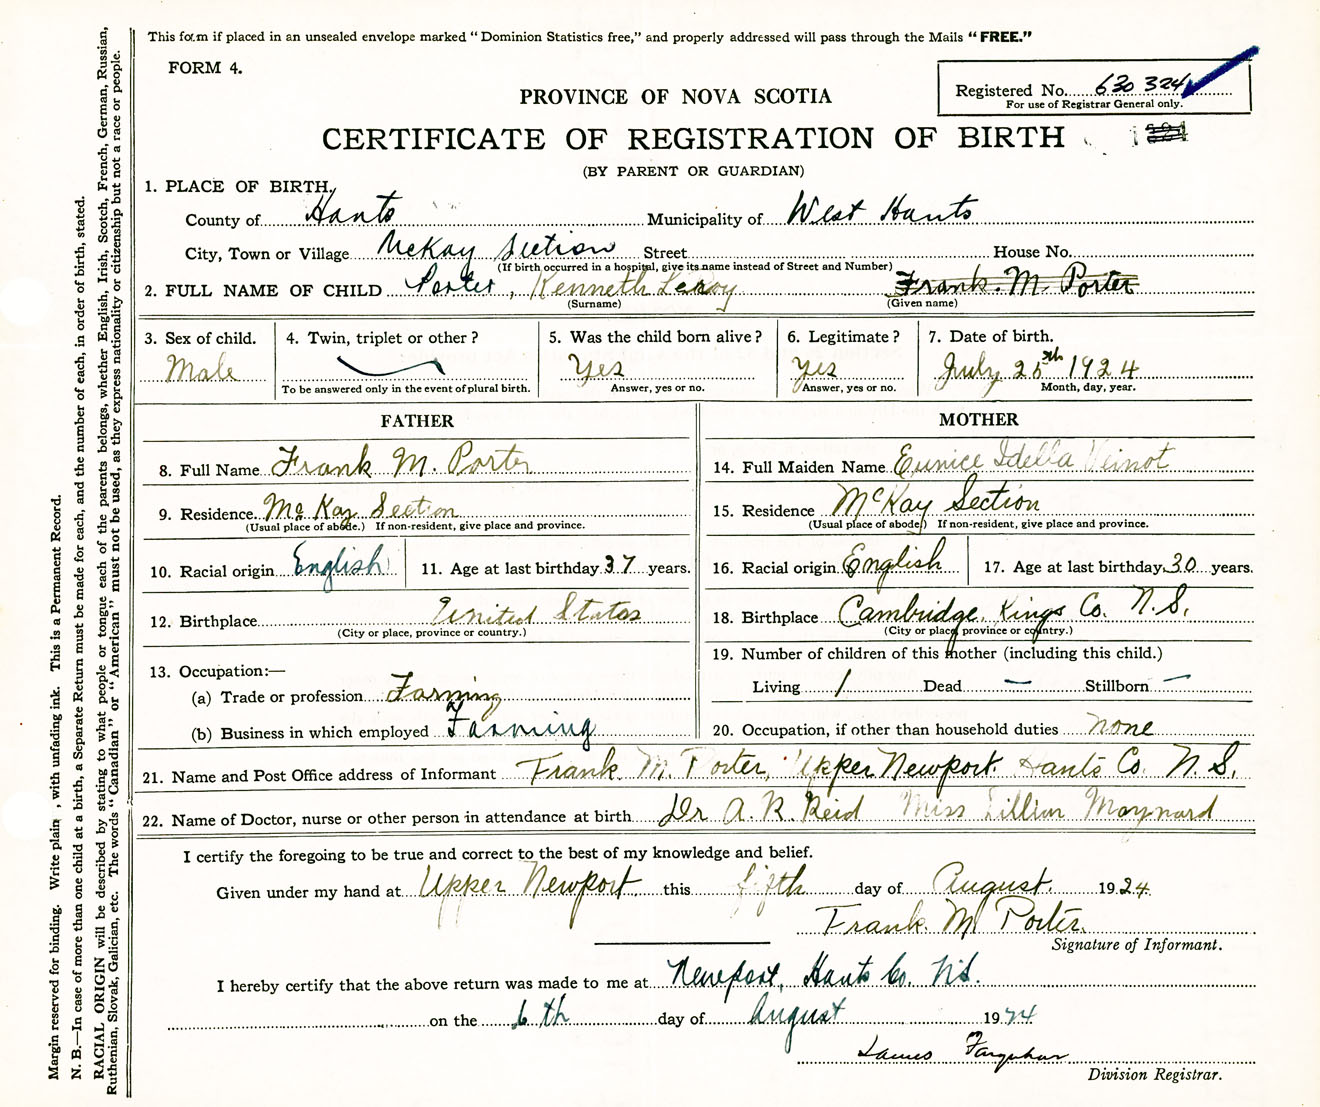 This form if placed in an unsealed envelope marked "Dominion Statistics free," and properly addressed will pass through the Mails "FREE."
FORM 4.
Registered No. 630 324
For use of Registrar General only.
PROVINCE OF NOVA SCOTIA
CERTIFICATE OF REGISTRATION OF BIRTH
(BY PARENT OR GUARDIAN)
1. PLACE OF BIRTH.
County of Hants Municipality of West Hants
City, Town or Village McKay Section Street House No.
(If birth occurred in a hospital, give its name instead of Street and Number)
2. FULL NAME OF CHILD Porter, Kenneth Leroy Frank. M. Porter
(Surname) (Given name)
3. Sex of child. 4. Twin, triplet or other? 5. Was the child born alive? 6. Legitimate? 7. Date of birth.
Male Yes Yes July 25th 1924
To be answered only in the event of plural birth. Answer, yes or no. Answer, yes or no. Month, day, year.
FATHER MOTHER
8. Full Name Frank M. Porter 14. Full Maiden Name Eunice Idella Veinot
9. Residence McKay Section 15. Residence McKay Section
(Usual place of abode.) If non-resident, give place and province. (Usual place of abode) If non-resident, give place and province.
10. Racial origin English 11. Age at last birthday 37 years. 16. Racial origin English 17. Age at last birthday 30 years.
12. Birthplace United States 18. Birthplace Cambridge, Kings Co. N.S.
(City or place, province or country.) (City or place, province or country.)
13. Occupation:— 19. Number of children of this mother (including this child.)
(a) Trade or profession Farming Living 1 Dead — Stillborn —
(b) Business in which employed Farming 20. Occupation, if other than household duties none
21. Name and Post Office address of Informant Frank. M. Porter, Upper Newport. Hants Co. N.S.
22. Name of Doctor, nurse or other person in attendance at birth Dr A. R. Reid Miss Lillian Maynard
I certify the foregoing to be true and correct to the best of my knowledge and belief.
Given under my hand at Upper Newport this fifth day of August. 1924.
Frank. M. Porter.
Signature of Informant.
I hereby certify that the above return was made to me at Newport, Hants Co. N.S.
on the 6th day of August 1924
James Farquhar
Division Registrar.
Margin reserved for binding. Write plain, with unfading ink. This is a Permanent Record.
N. B.—In case of more than one child at a birth, a Separate Return must be made for each, and the number of each, in order of birth, stated.
RACIAL ORIGIN will be described by stating to what people or tongue each of the parents belongs, whether English, Irish, Scotch, French, German, Russian,
Ruthenian, Slovak, Galician, etc. The words "Canadian" or "American" must not be used, as they express nationality or citizenship but not a race or people.